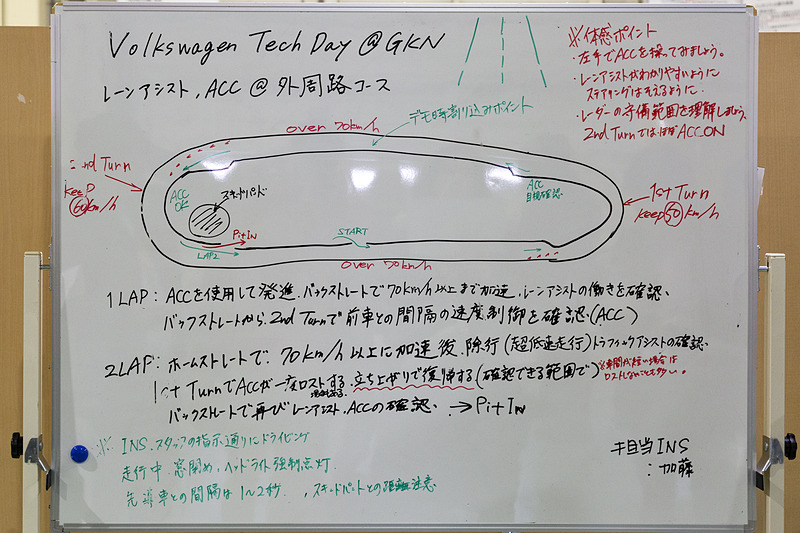 Volkswagen Tech Day @ GKN
レーンアシスト, ACC @ 外周路コース
※体感ポイント
・左手でACCを操ってみましょう。
・レーンアシストがわかりやすいように
ステアリングはそえるように.
・レーダーの守備範囲を理解しましょう。
2nd Turnではほぼ ACC ON
デモ時割り込みポイント
over 70km/h
2nd Turn
keep
60km/h
ACC
OK
スキッドパッド
Pit IN
LAP2
START
ACC
目視確認
1st Turn
keep 50 km/h
over 70km/h
1LAP: ACCを使用して発進.バックストレートで70km/h以上まで加速,レーンアシストの働きを確認、
バックストレートから,2nd Turnで前車との間隔の速度制御を確認.(ACC)
2LAP: ホームストレートで、70km/h以上に加速後.除行(超低速走行)トラフィックアシストの確認、
1st TurnでACCが一度ロストする.立ち上がりで復帰する(確認できる範囲で)
場合がある.
※車間が短い場合は
ロストしないことも多い。
バックストレートで再びレーンアシスト,ACCの確認、→Pit IN
※ INS.スタッフの指示通りにドライビング
走行中 窓閉め、ヘッドライト強制点灯.
先導車との間隔は1~2秒 ,スキッドパッドとの距離注意
担当INS
:加藤